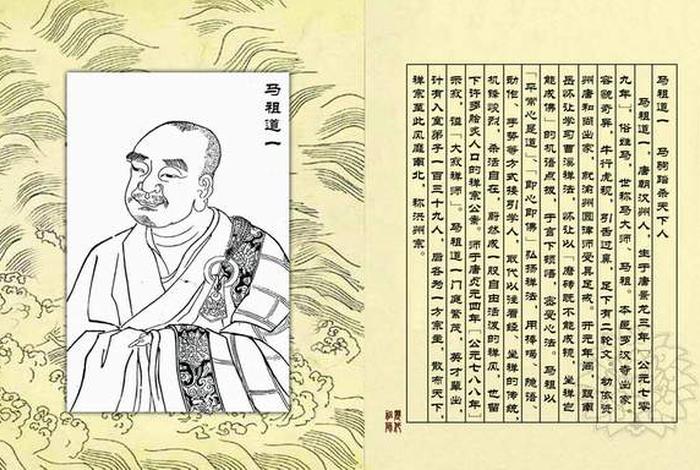 马祖道一
马祖道一　马驹踏杀天下人
马祖道一，唐朝汉州人，生于唐景龙三年（公元七零
九年），俗姓马，世称马大师、马祖。本邑罗汉寺出家
容貌奇异，牛行虎视，引舌过鼻，足下有二轮文，幼依资
州唐和尚出家，就渝州圆律师受具足戒。开元年间，跟南
岳怀让学习曹溪禅法，怀让以「磨砖既不能成镜，坐禅岂
能成佛」的机语点拨，于言下领悟，密受心法。马祖以
「平常心是道」、「即心即佛」弘扬禅法，用棒喝、隐语、
动作、手势等方式接引学人，取代以往看经、坐禅的传统，
机锋峻烈，杀活自在，蔚然成一股自由活泼的禅风，也留
下许多脍炙人口的禅宗公案。师于唐贞元四年［公元七八八年］
示寂，谥「大寂禅师」。马祖道一门庭繁茂，英才辈出，
计有入室弟子一百三十九人，后各为一方宗主，散布天下，
禅宗至此风靡南北，称洪州宗。